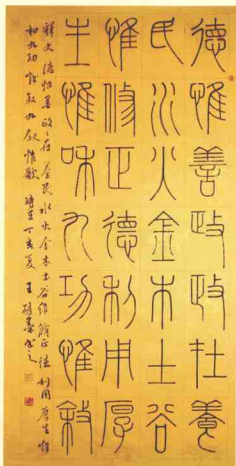 德惟善政政在養
民水火金木土谷
惟修正德利用厚
生惟和九功惟敘
釋文 德惟善政政在養民水火金木土谷惟修正德利用厚生惟
和九功惟叙九叙惟歌 時在丁亥夏 王 书之